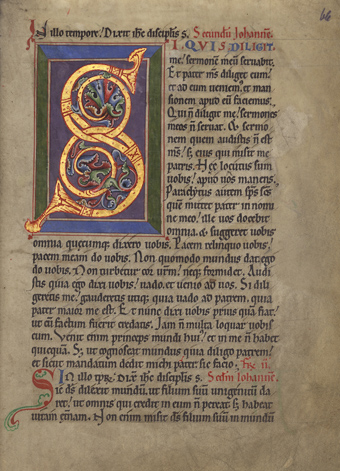 66
In illo tempore, Dixit ihc̄ disciplis s. Secundū Iohannē.
SI QUIS DILIGIT
me, sermonē meū servabit,
Et pater ms̄ diliget eum,
et ad eum veniemꝰ, et man
sionem apud eū faciemus.
Qui n̄ diligit me, sermones
meos n̄ servat. Et sermo
nem quem audistis n̄ est
ms̄, s; eius qui misit me
patris. Hec locutus sum
vobis, apud vos manens.
Paraclytus autem sps̄ scs̄
quē mittet pater in nomi
ne meo, ille vos docebit
omnia. & suggeret vobis
omnia quecumq; dixero vobis. Pacem relinquo vobis,
pacem meam do vobis. Non quomodo mundus dat, ego
do vobis. Non turbetur cor vr̄m, neq; formidet. Audi
stis quia ego dixi vobis, vado, et venio ad vos. Si dili
geretis me, gauderetis utiq; quia vado ad patrem, quia
pater maior me est. Et nunc dixi vobis prius quā fiat,
ut cū factum fuerit credatis. Iam n̄ multa loquar vobis
cum. Venit enim princeps mundi huiꝰ, et in me n̄ habet
quicquā. S; ut cognoscat mundus quia diligo patrem,
et sicut mandatum dedit michi pater sic facio.
In illo tpr̄e, Dixit ihc̄ disciplis s. Scd̄m Iohannē.
Sic ds̄ dilexit mundū, ut filium suū unigenitū da
ret, ut omnis qui credit in eum n̄ pereat, s; habeat
vitam et̄nam. Non enim misit ds̄ filium suū in mundū